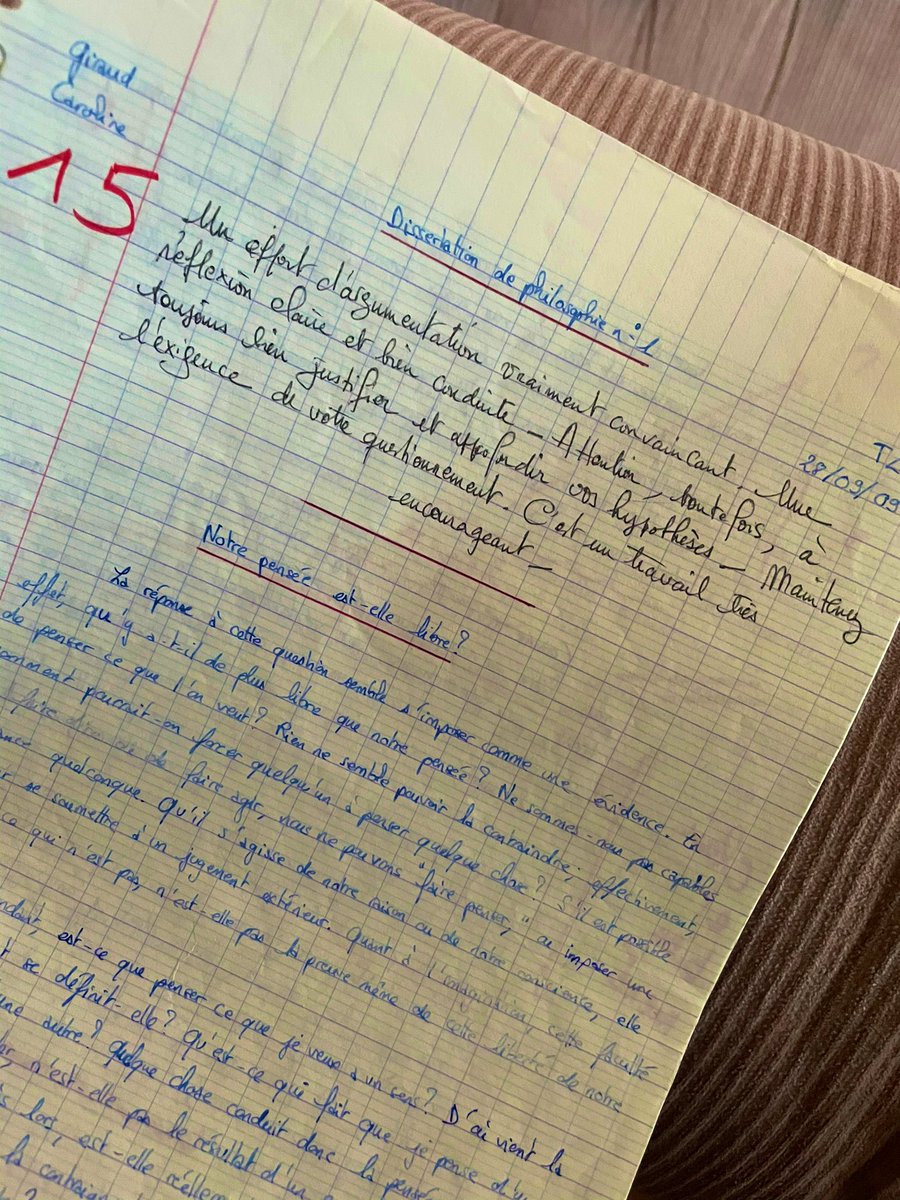 Giraud
Caroline
15
Dissertation de philosophie n°1
TL
28/09/09
Un effort d'argumentation vraiment convaincant. Une
réflexion claire et bien conduite – Attention, toutefois, à
toujours bien justifier et approfondir vos hypothèses – Maintenez
l'exigence de votre questionnement. C'est un travail très
encourageant –
Notre pensée est-elle libre ?
La réponse à cette question semble s'imposer comme une évidence. En
effet, qu'y a-t-il de plus libre que notre pensée ? Ne sommes-nous pas capables
de penser ce que l'on veut ? Rien ne semble pouvoir la contraindre ; effectivement,
comment pourrait-on forcer quelqu'un à penser quelque chose ? S'il est possible
de faire agir, nous ne pouvons "faire penser", ou imposer une
quelconque. Qu'il s'agisse de notre raison ou de notre conscience, elle
se soumettre à un jugement extérieur. Quant à l'imagination, cette faculté
ce qui n'est pas, n'est-elle pas la preuve même de cette liberté de notre
est-ce que penser ce que je veux a un sens ? D'où vient la
se définit-elle ? Qu'est-ce qui fait que je pense d'un
une autre ? Quelque chose conduit donc la pensée
n'est-elle pas le résultat d'un
lors, est-elle réellement
la contraign